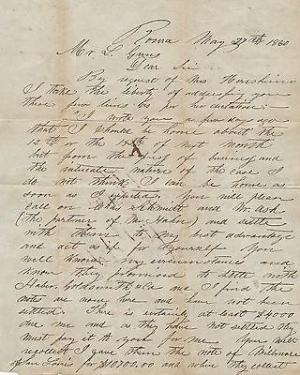 Poma May 27th 1860
Mr. L. Guns
Dear Sir
By request of Mrs Hershiser
I take the liberty of addressing you
these few lines by for her dictation:
"I wrote you a few days ago
that I should be home about the
12th or the 15th of next month
but from the of business and
the intricate nature of the case I
do not think I can be home as
soon as I expected. You will please
call on Chas Schmidt and W. Ash
(the partner of Mr. Haber) and settle
with them to my best advantage
and act as if for yourself. You
well know my circumstances and
know they promised to settle with
Haber, Goldsmith & Co me I find the
notes are now here and have not been
settled. There is certainly at least $4000
due me and as they have not settled they
must pay it to you for me. You will
recollect I gave them the note of
San Louis for $10700.00 and when they collect